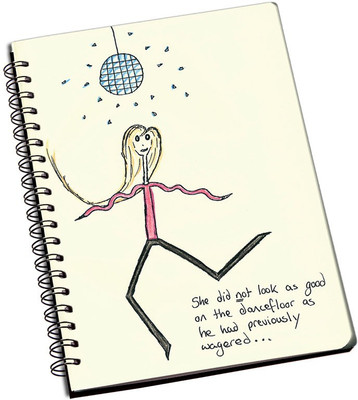 She did not look as good
on the dancefloor as
he had previously
wagered...